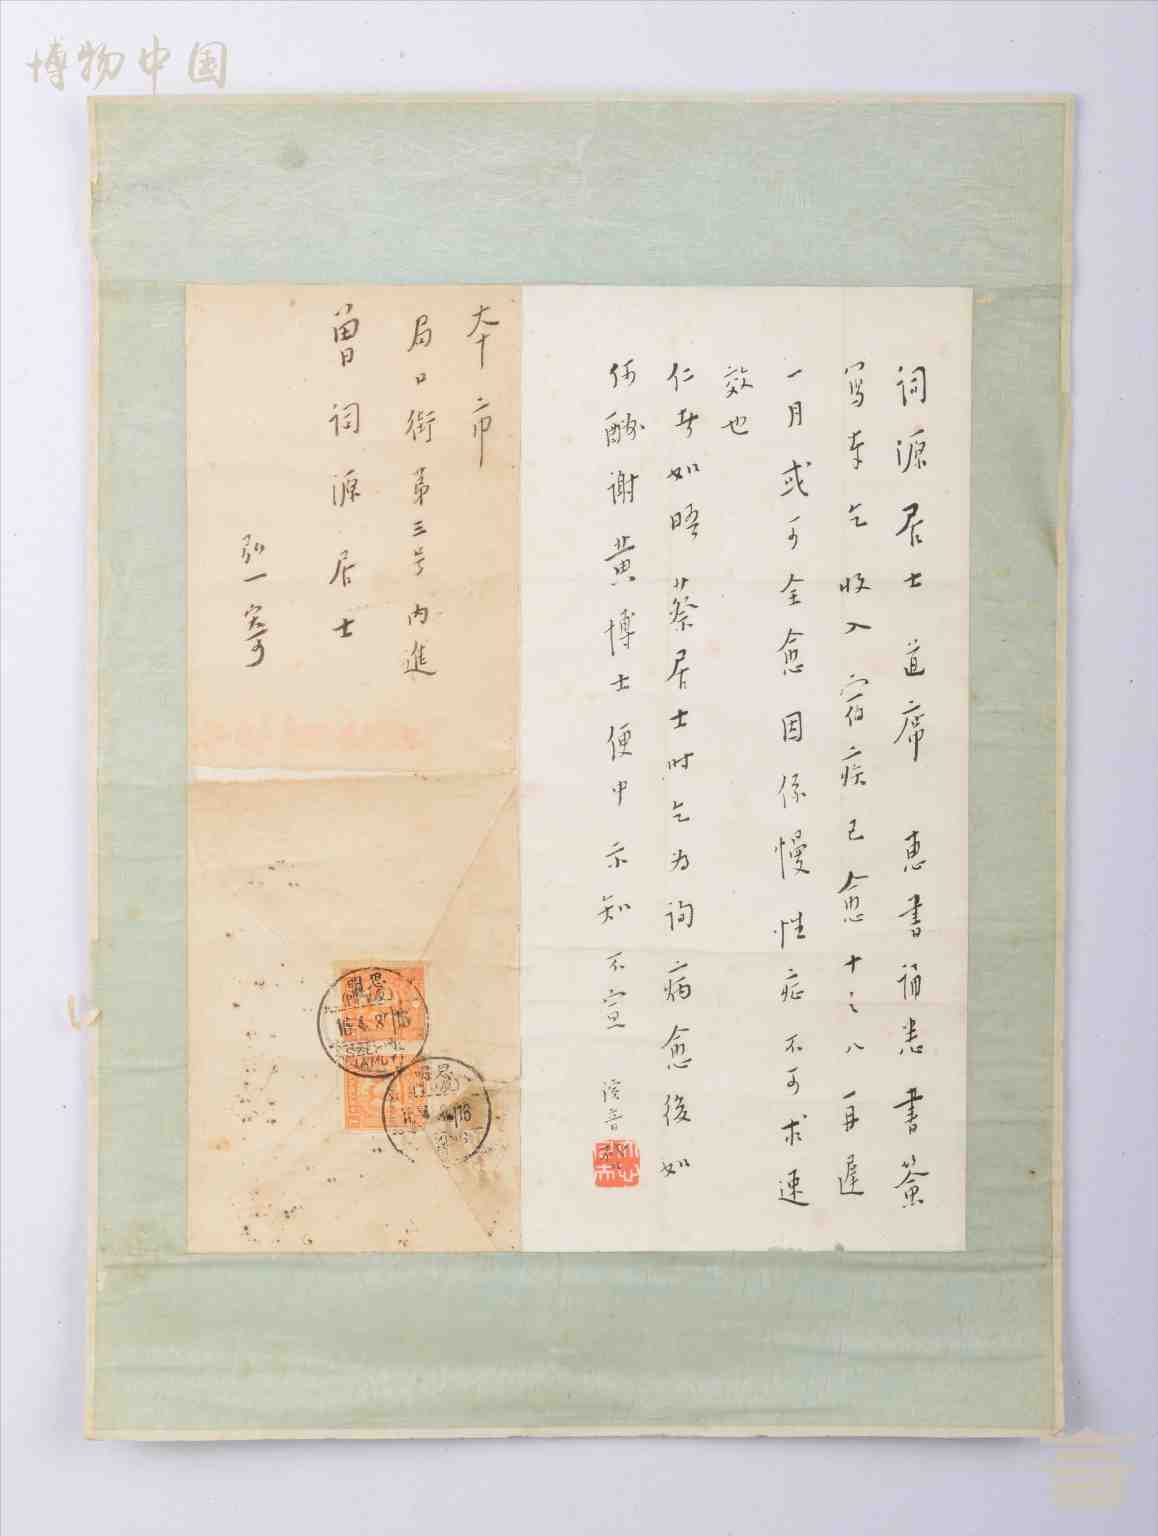 博物中国
詞源居士 道席 惠書誦悉書簽
寫奉乞收入宿疾已愈十之八再遲
一月或可全愈因係慢性症不可求速
效也
仁者如晤蔡居士时乞为詢病愈後如
何酬谢黄博士便中示知不宣 演音
本市
局口街第三号内進
曾詞源居士
弘一寄
思明